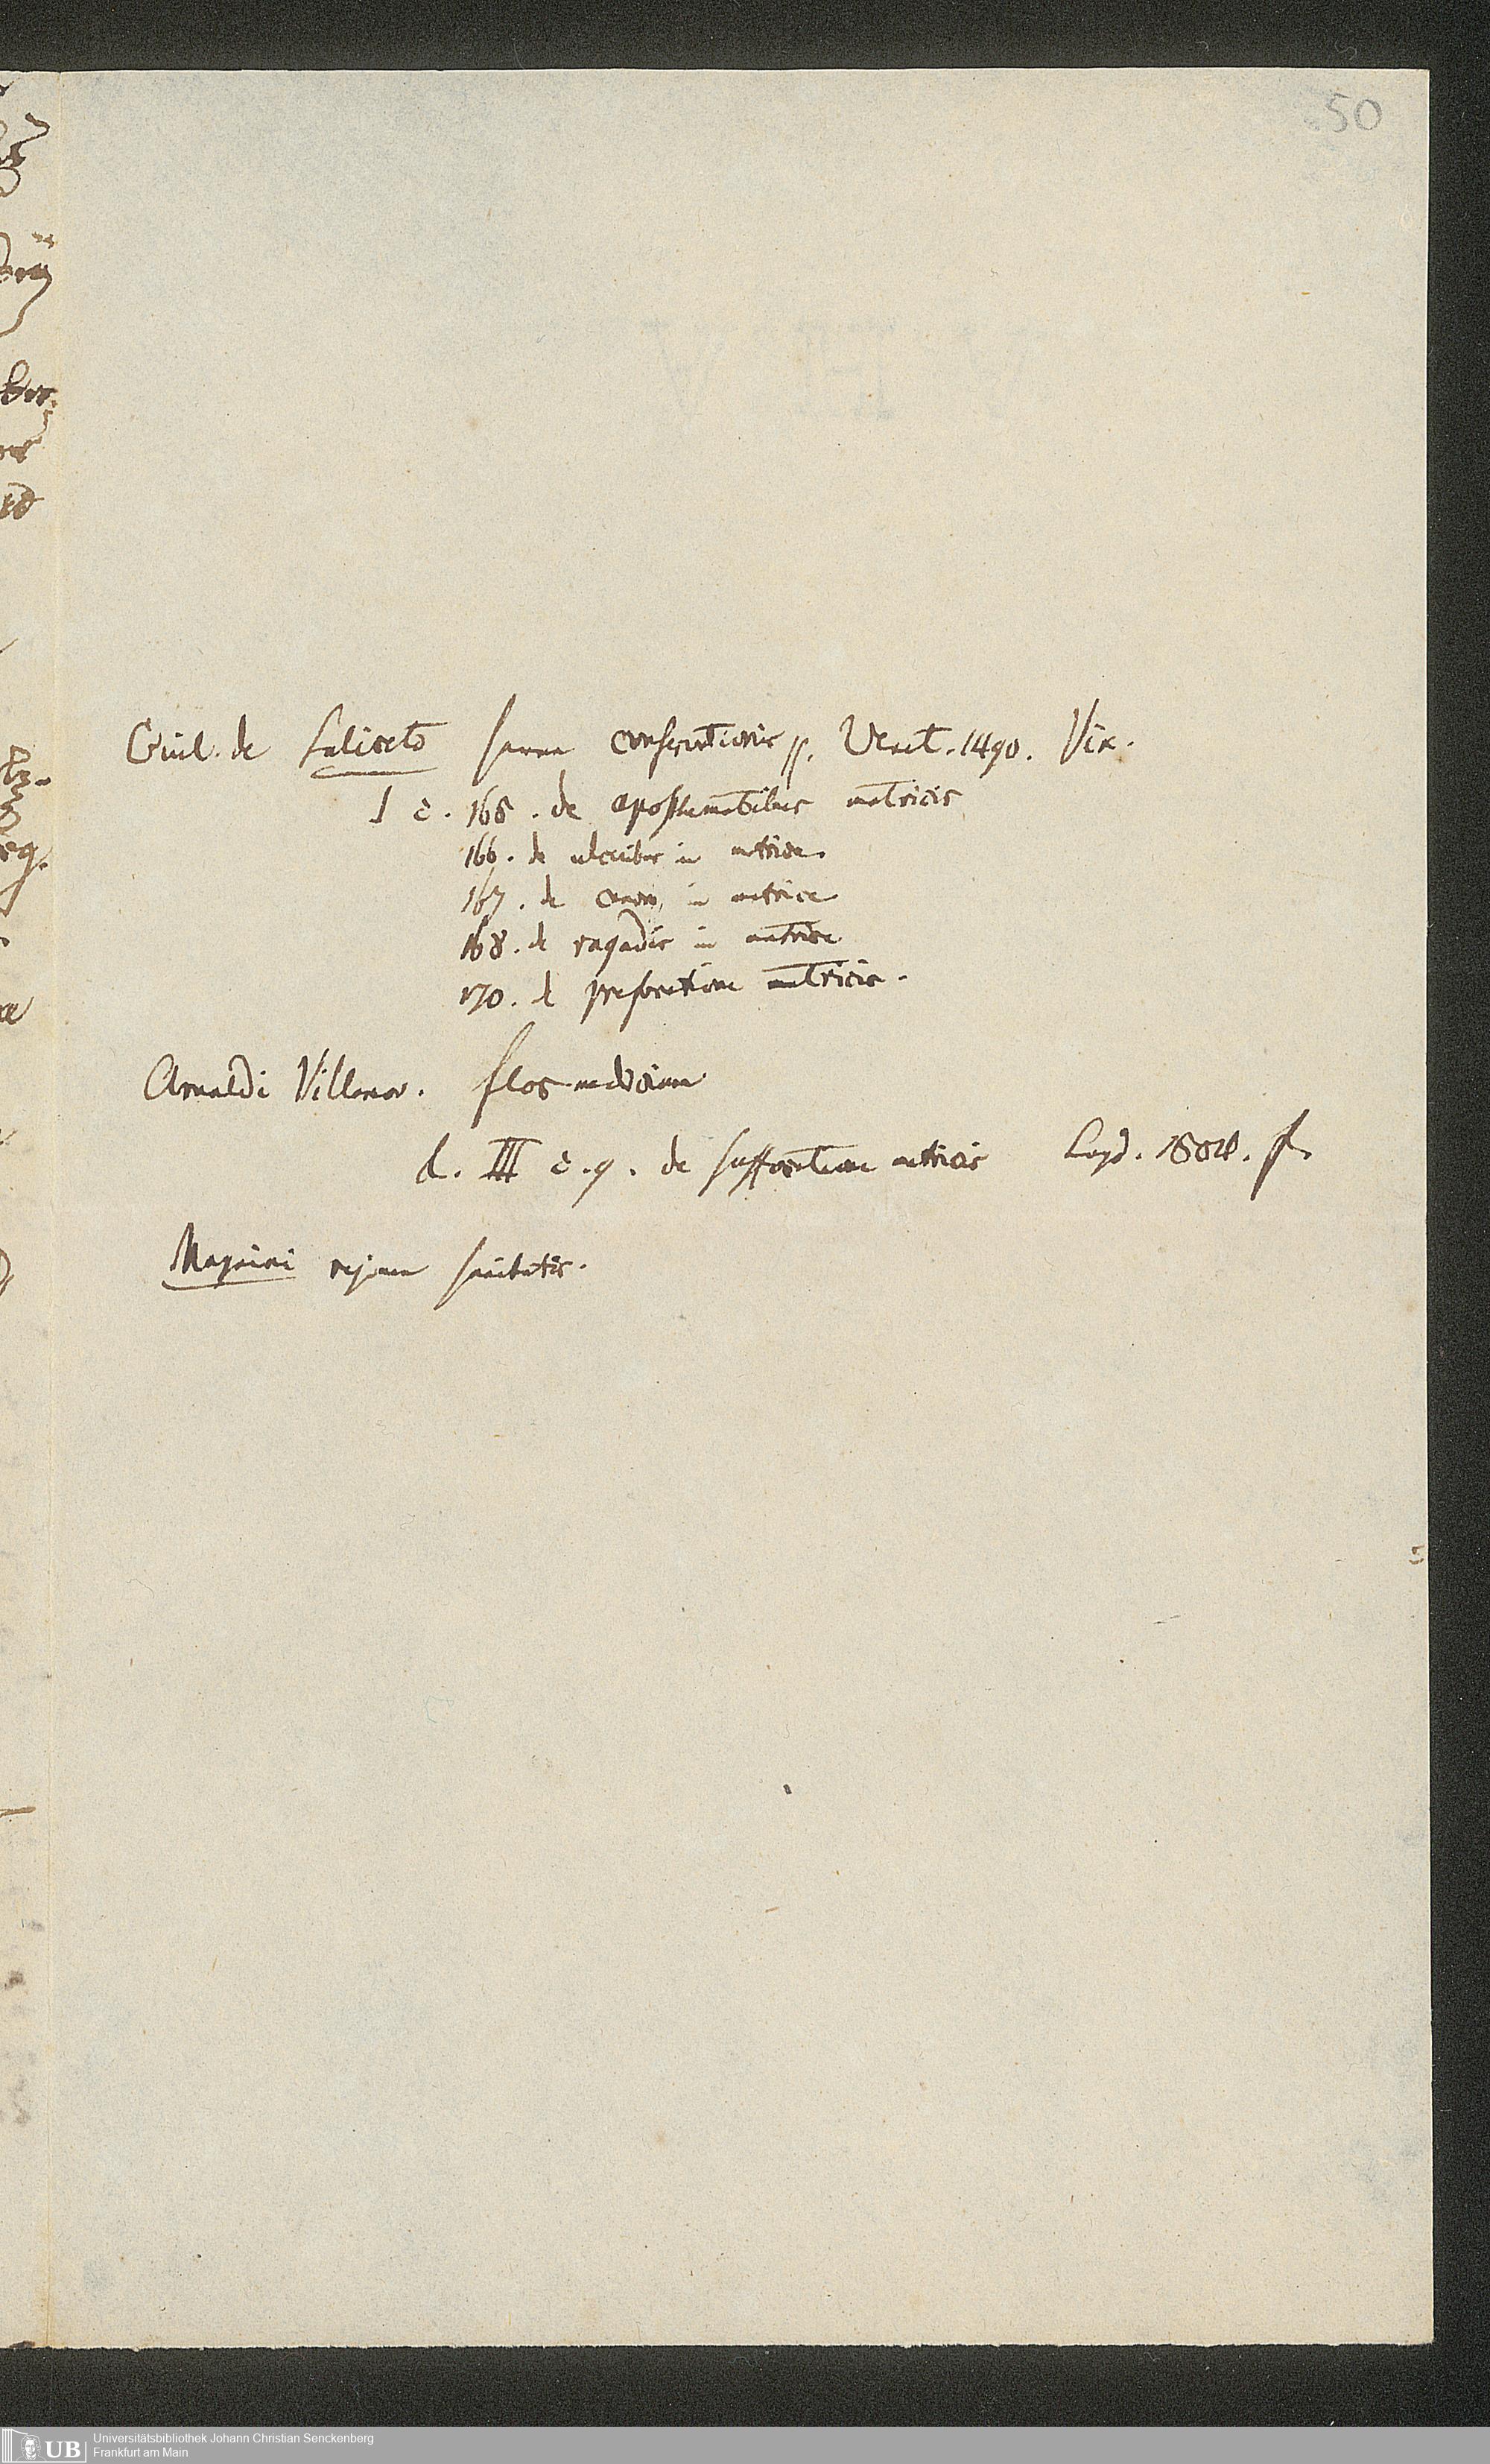 50
Guil. de Saliceto summa conservationis pp. Venet. 1490. Vix.
I c. 165. de apostematibus matricis
166. de ulceribus in matrice.
167. de cancro in matrice
168. de ragadiis in matrice
170. de prefocatione matricis.
Arnaldi Villanov. flos medicinae
L. III c. 9. de suffocatione matricis Lugd. f.
Magnini regimen sanitatis.
Universitätsbibliothek Johann Christian Senckenberg
UB Frankfurt am Main